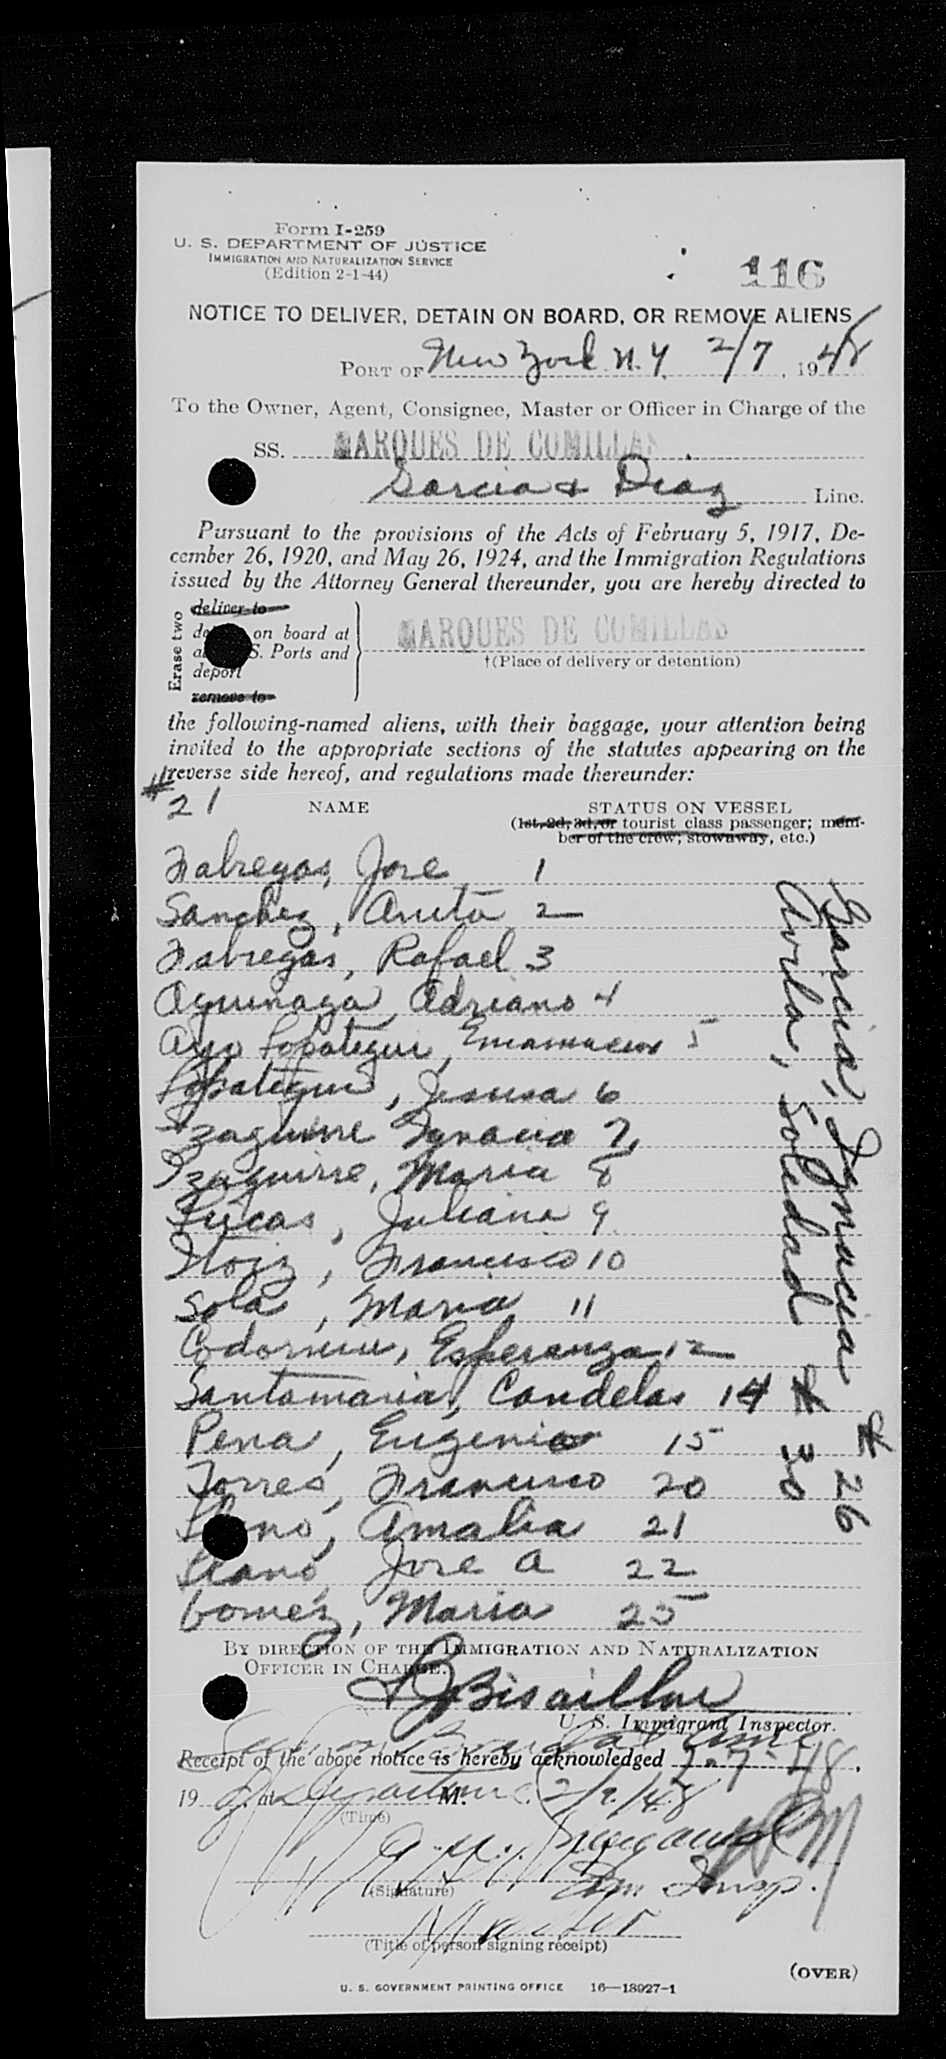 Form I-259
U. S. DEPARTMENT OF JUSTICE
IMMIGRATION AND NATURALIZATION SERVICE
(Edition 2-1-44)
116
NOTICE TO DELIVER, DETAIN ON BOARD, OR REMOVE ALIENS
PORT OF New York N.Y. 2/7, 1948
To the Owner, Agent, Consignee, Master or Officer in Charge of the
SS. MARQUES DE COMILLAS
Garcia & Diaz Line.
Pursuant to the provisions of the Acts of February 5, 1917, De-
cember 26, 1920, and May 26, 1924, and the Immigration Regulations
issued by the Attorney General thereunder, you are hereby directed to
Erase two
deliver to
on board at
S. Ports and
deport
remove to
MARQUES DE COMILLAS
†(Place of delivery or detention)
the following-named aliens, with their baggage, your attention being
invited to the appropriate sections of the statutes appearing on the
reverse side hereof, and regulations made thereunder:
# 21
NAME
STATUS ON VESSEL
(1st, 2d, 3d, or tourist class passenger; mem-
ber of the crew, stowaway, etc.)
Fabregas, Jose 1
Sanchez, Anita 2
Fabregas, Rafael 3
Aguinaga, Adriano 4
Ayo Lopategui, 5
Lopategui, Jesusa 6
Izaguirre Ignacio 7
Izaguirre, Maria 8
Lucas, Juliana 9
Itoiz, Francisco 10
Sola, Maria 11
Codorniu, Esperanza 12
Santamaria, Candelas 14
Pena, Eugenio 15
Torres, Francisco 20
Llano, Amalia 21
Llano, Jose A 22
Gomez, Maria 25
Garcia, Ignacia # 26
Avila, Soledad # 30
BY DIRECTION OF THE IMMIGRATION AND NATURALIZATION
OFFICER IN CHARGE.
Bisaillon
U. S. Immigrant Inspector.
Receipt of the above notice is hereby acknowledged 2-7-48,
19 at M. 2/9/48
(Time)
Imm Insp.
(Signature)
Master
(Title of person signing receipt)
(OVER)
U. S. GOVERNMENT PRINTING OFFICE 16—18927-1